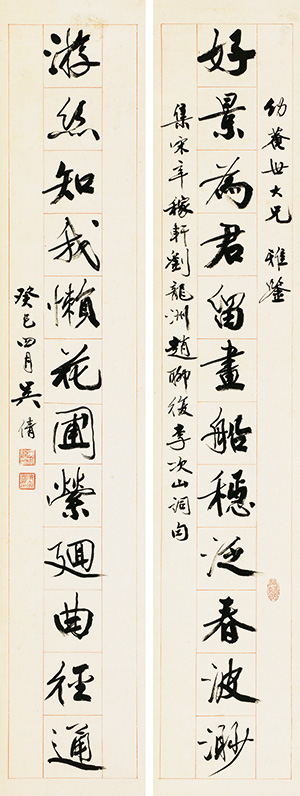 幼菴世大兄 雅鑒
好景為君留畫船穩泛春波渺
集宋辛稼軒劉龍洲趙聊復李次山詞句
游絲知我懶花圃縈廻曲徑通
癸巳四月吳倩